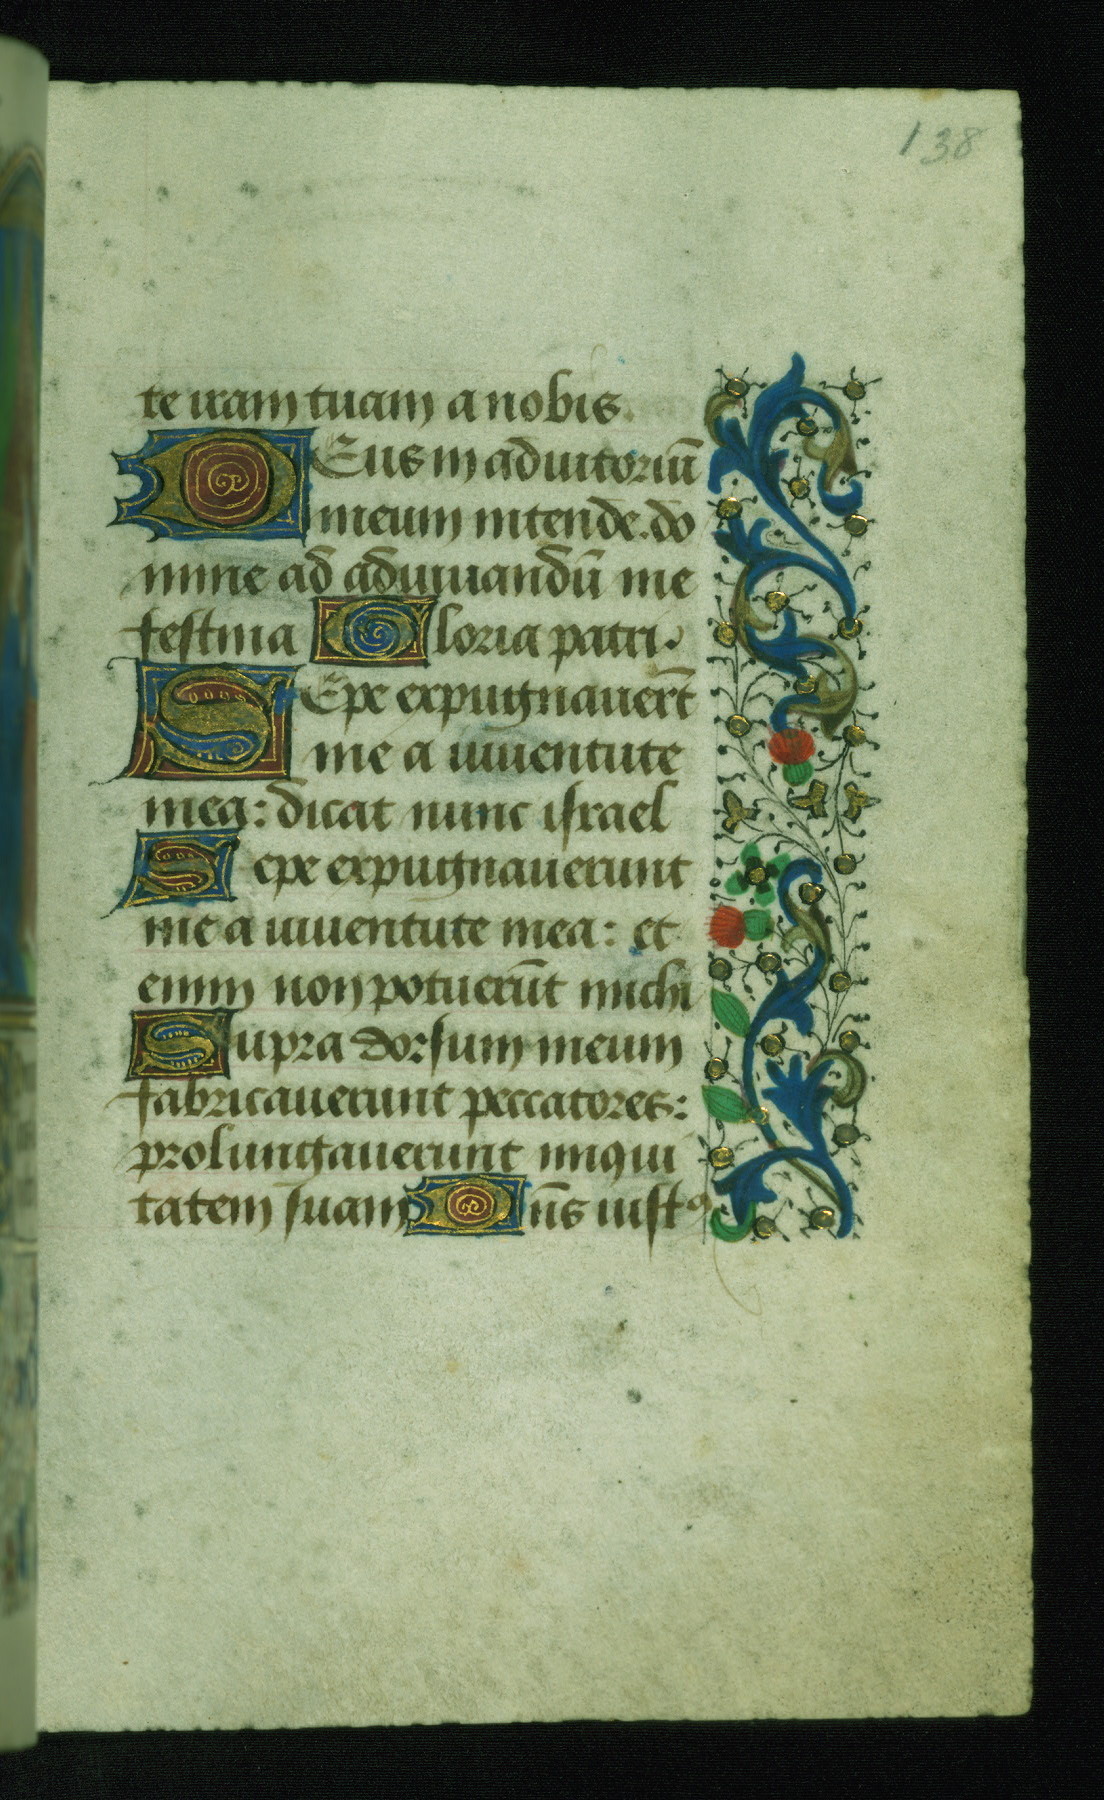 138
te iram tuam a nobis.
Deus in adiutoriū
meum intende. do
mine ad adiuuandū me
festina Gloria patri.
Sepe expugnauerūt
me a iuuentute
mea: dicat nunc israel
Sepe expugnauerunt
me a iuuentute mea: et
enim non potuerūt michi
Supra dorsum meum
fabricauerunt peccatores:
prolungauerunt iniqui
tatem suam Dn̄s iustꝰ